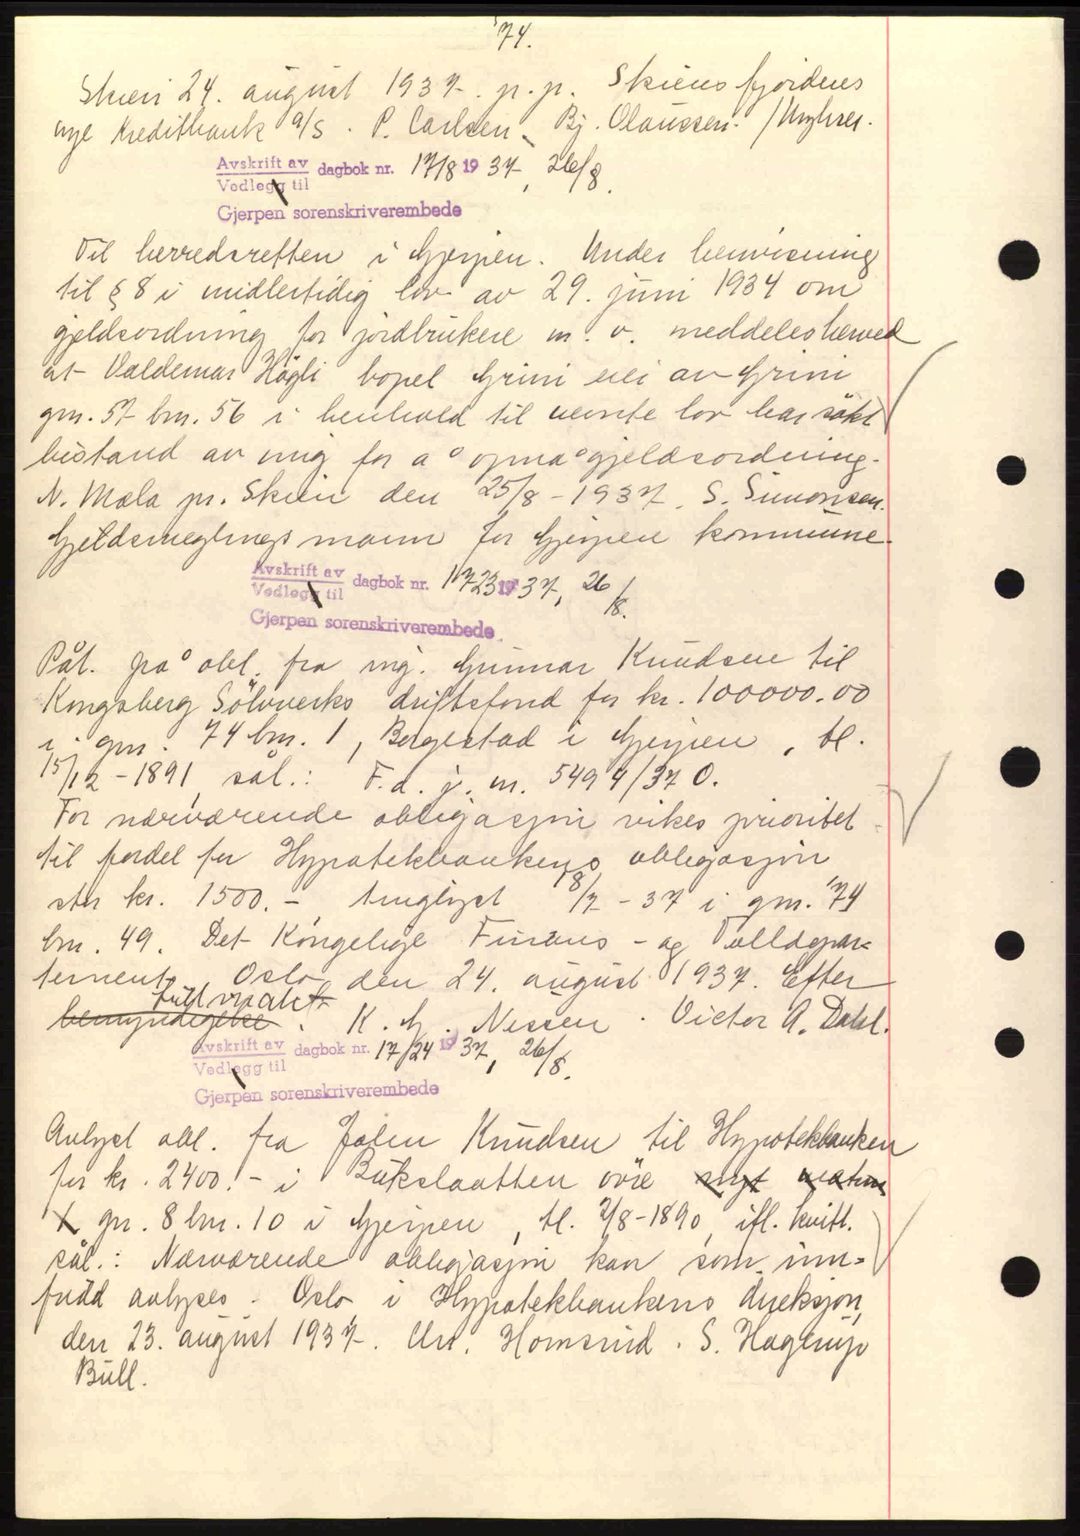 74.
Skien 24. august 1937. p.p. Skiensfjordens
nye Kreditbank a/s. P. Carlsen. Bj. Olaussen.
Avskrift av
Vedlegg til
dagbok nr. 17/8 1937, 26/8.
Gjerpen sorenskriverembede
Til herredsretten i Gjerpen. Under henvisning
til § 8 i midlertidig lov av 29. juni 1934 om
gjeldsordning for jordbrukere m. v. meddeles herved
at Valdemar Högli bopel Grini eier av Grini
gnr. 57 bnr. 56 i henhold til nevnte lov har søkt
bistand av mig for å opnå gjeldsordning.
N. Mæla pr. Skien den 25/8-1937. S. Simonsen.
Gjeldsmeglingsmann for Gjerpen kommune.
Avskrift av
Vedlegg til
dagbok nr. 1723 1937, 26/8.
Gjerpen sorenskriverembede
Påt. på obl. fra ing. Gunnar Knudsen til
Kongsberg Sölvverks driftsfond for kr. 100000.00
i gnr. 74 bnr. 1, Borgestad i Gjerpen, tl.
15/12-1891, sål.: F.d. j. nr. 5494/37 O.
For nærværende obligasjon vikes prioritet
til fordel for Hypotekbankens obligasjon
stor kr. 1500.- tinglyst 8/7-37 i gnr. 74
bnr. 49. Det Kongelige Finans- og Tolldepar-
tement, Oslo, den 24. august 1937. Efter
fullmakt
bemyndigelse. K. G. Nissen. Victor A. Dahl.
Avskrift av
Vedlegg til
dagbok nr. 17/24 1937, 26/8.
Gjerpen sorenskriverembede
Avlyst obl. fra Johan Knudsen til Hypotekbanken
for kr. 2400.- i Bukslaatten övre
gnr. 8 bnr. 10 i Gjerpen, tl. 2/8-1890, ifl. kvitt.
sål.: Nærværende obligasjon kan som inn-
fridd avlyses. Oslo i Hypotekbankens direksjon,
den 23. august 1937. Chr. Homsrud. S. Hagerup
Bull.